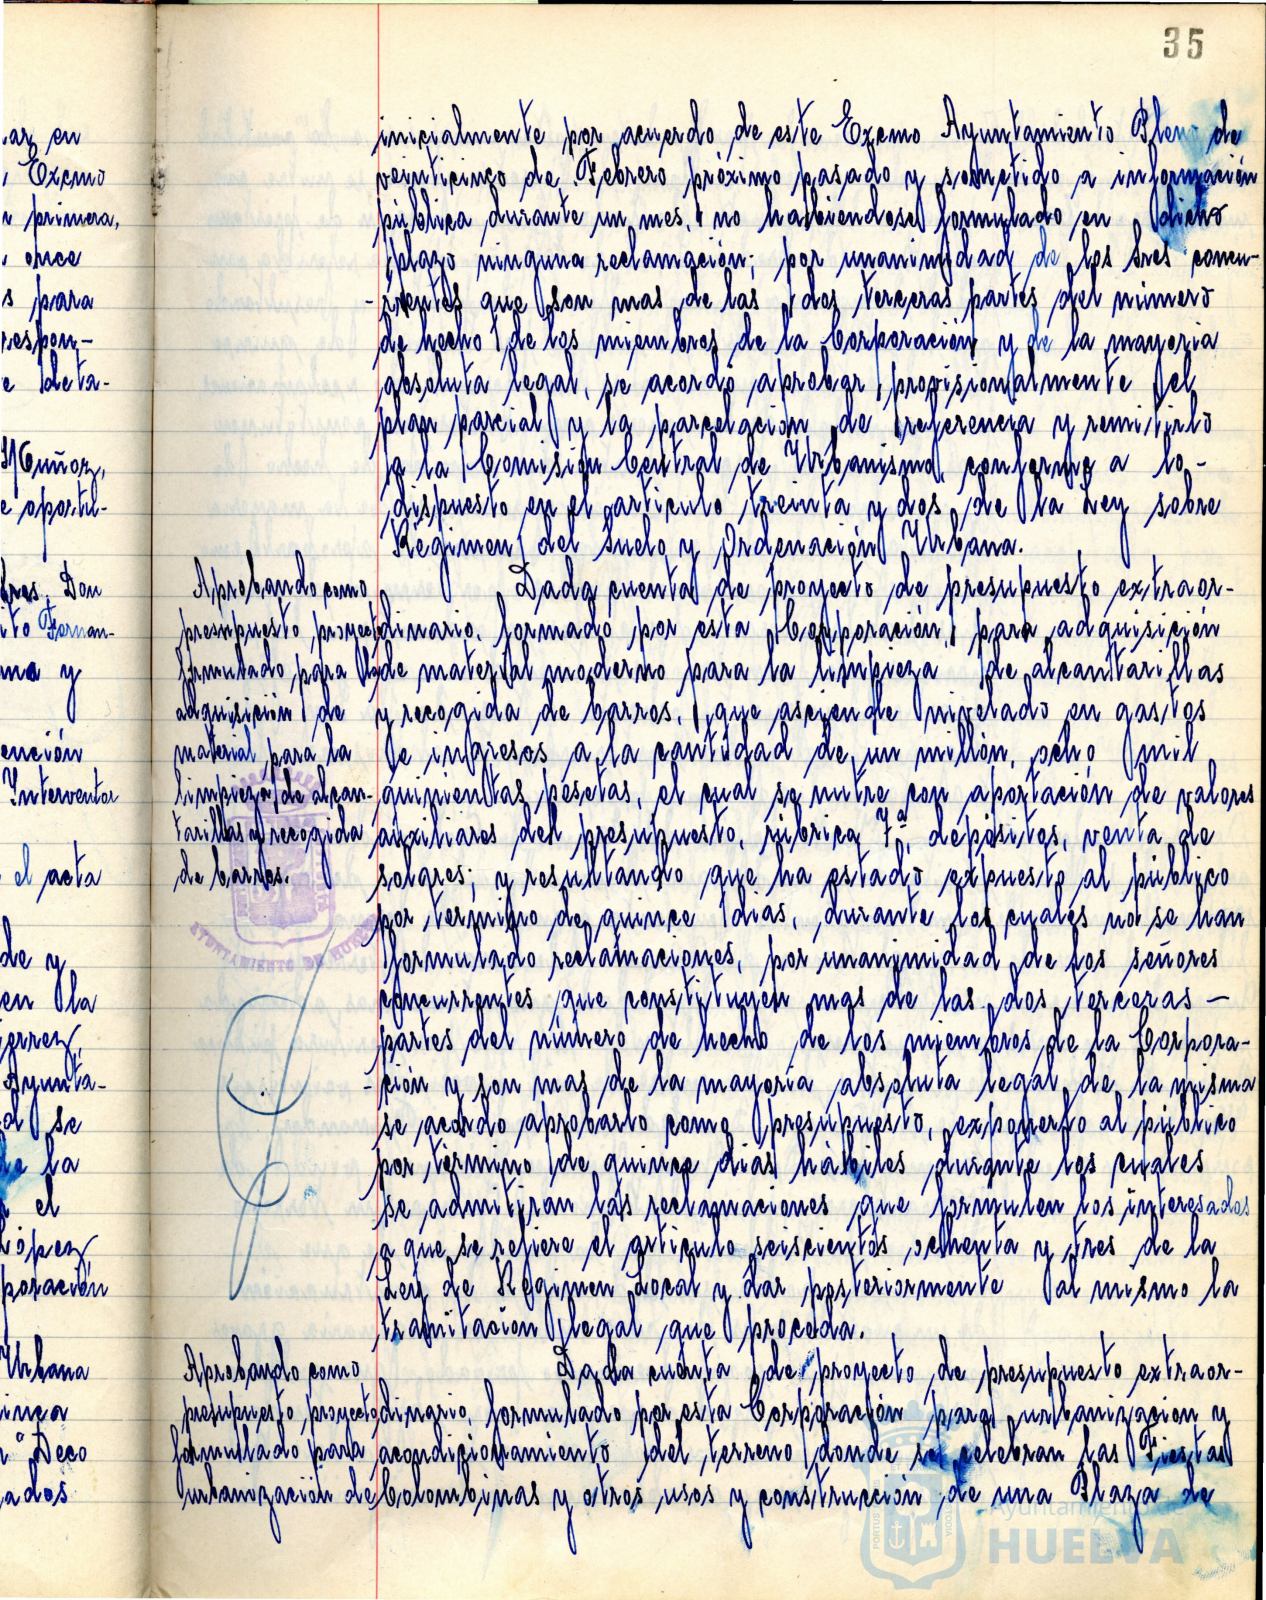 35
ar en
Excmo
primera,
once
s para
respon-
e deta-
Muñoz,
e oportu-
Don
to Fernan-
ma y
ención
Interventor
el acta
de y
en la
Ayunta-
se
la
el
López
poración
Urbana
inca
" Deco
ados
inicialmente por acuerdo de este Excmo Ayuntamiento Pleno de
veinticinco de Febrero próximo pasado y sometido a información
pública durante un mes, y no habiendose formulado en dicho
plazo ninguna reclamación; por unanimidad de los Sres concu-
-rrentes que son mas de las dos terceras partes del número
de hecho de los miembros de la Corporación y de la mayoria
absoluta legal, se acordó aprobar provisionalmente el
plan parcial y la parcelación de referencia y remitirlo
a la Comisión Central de Urbanismo, conforme a lo-
dispuesto en el articulo treinta y dos de la Ley sobre
Regimen del Suelo y Ordenación Urbana.
Aprobando como
presupuesto proyecto
formulado para la
adquisición de
material para la
limpieza de alcan-
tarillas y recogida
de barros.
Dada cuenta de proyecto de presupuesto extraor-
dinario, formado por esta Corporación, para adquisición
de material moderno para la limpieza de alcantarillas
y recogida de barros, que asciende nivelado en gastos
e ingresos a la cantidad de un millón, ocho mil
quinientas pesetas, el cual se nutre con aportación de valores
auxiliares del presupuesto, rúbrica 7ª, depósitos, venta de
solares; y resultando que ha estado expuesto al público
por termino de quince dias, durante los cuales no se han
formulado reclamaciones, por unanimidad de los señores
concurrentes que constituyen mas de las dos terceras -
partes del número de hecho de los miembros de la Corpora-
-ción y son mas de la mayoria absoluta legal de la misma
se acordo aprobarlo como presupuesto, exponerlo al público
por término de quince dias hábiles durante los cuales
se admitiran las reclamaciones que formulen los interesados
a que se refiere el articulo seiscientos ochenta y tres de la
Ley de Regimen Local y dar posteriormente al mismo la
tramitación legal que proceda.
Aprobando como
presupuesto proyecto
formullado para
urbanización de
Dada cuenta de proyecto de presupuesto extraor-
dinario, formulado por esta Corporación para urbanizacion y
acondicionamiento del terreno donde se celebran las Fiestas
Colombinas y otros usos y construcción de una Plaza de
AYUNTAMIENTO DE HUELVA
Ayuntamiento de
HUELVA